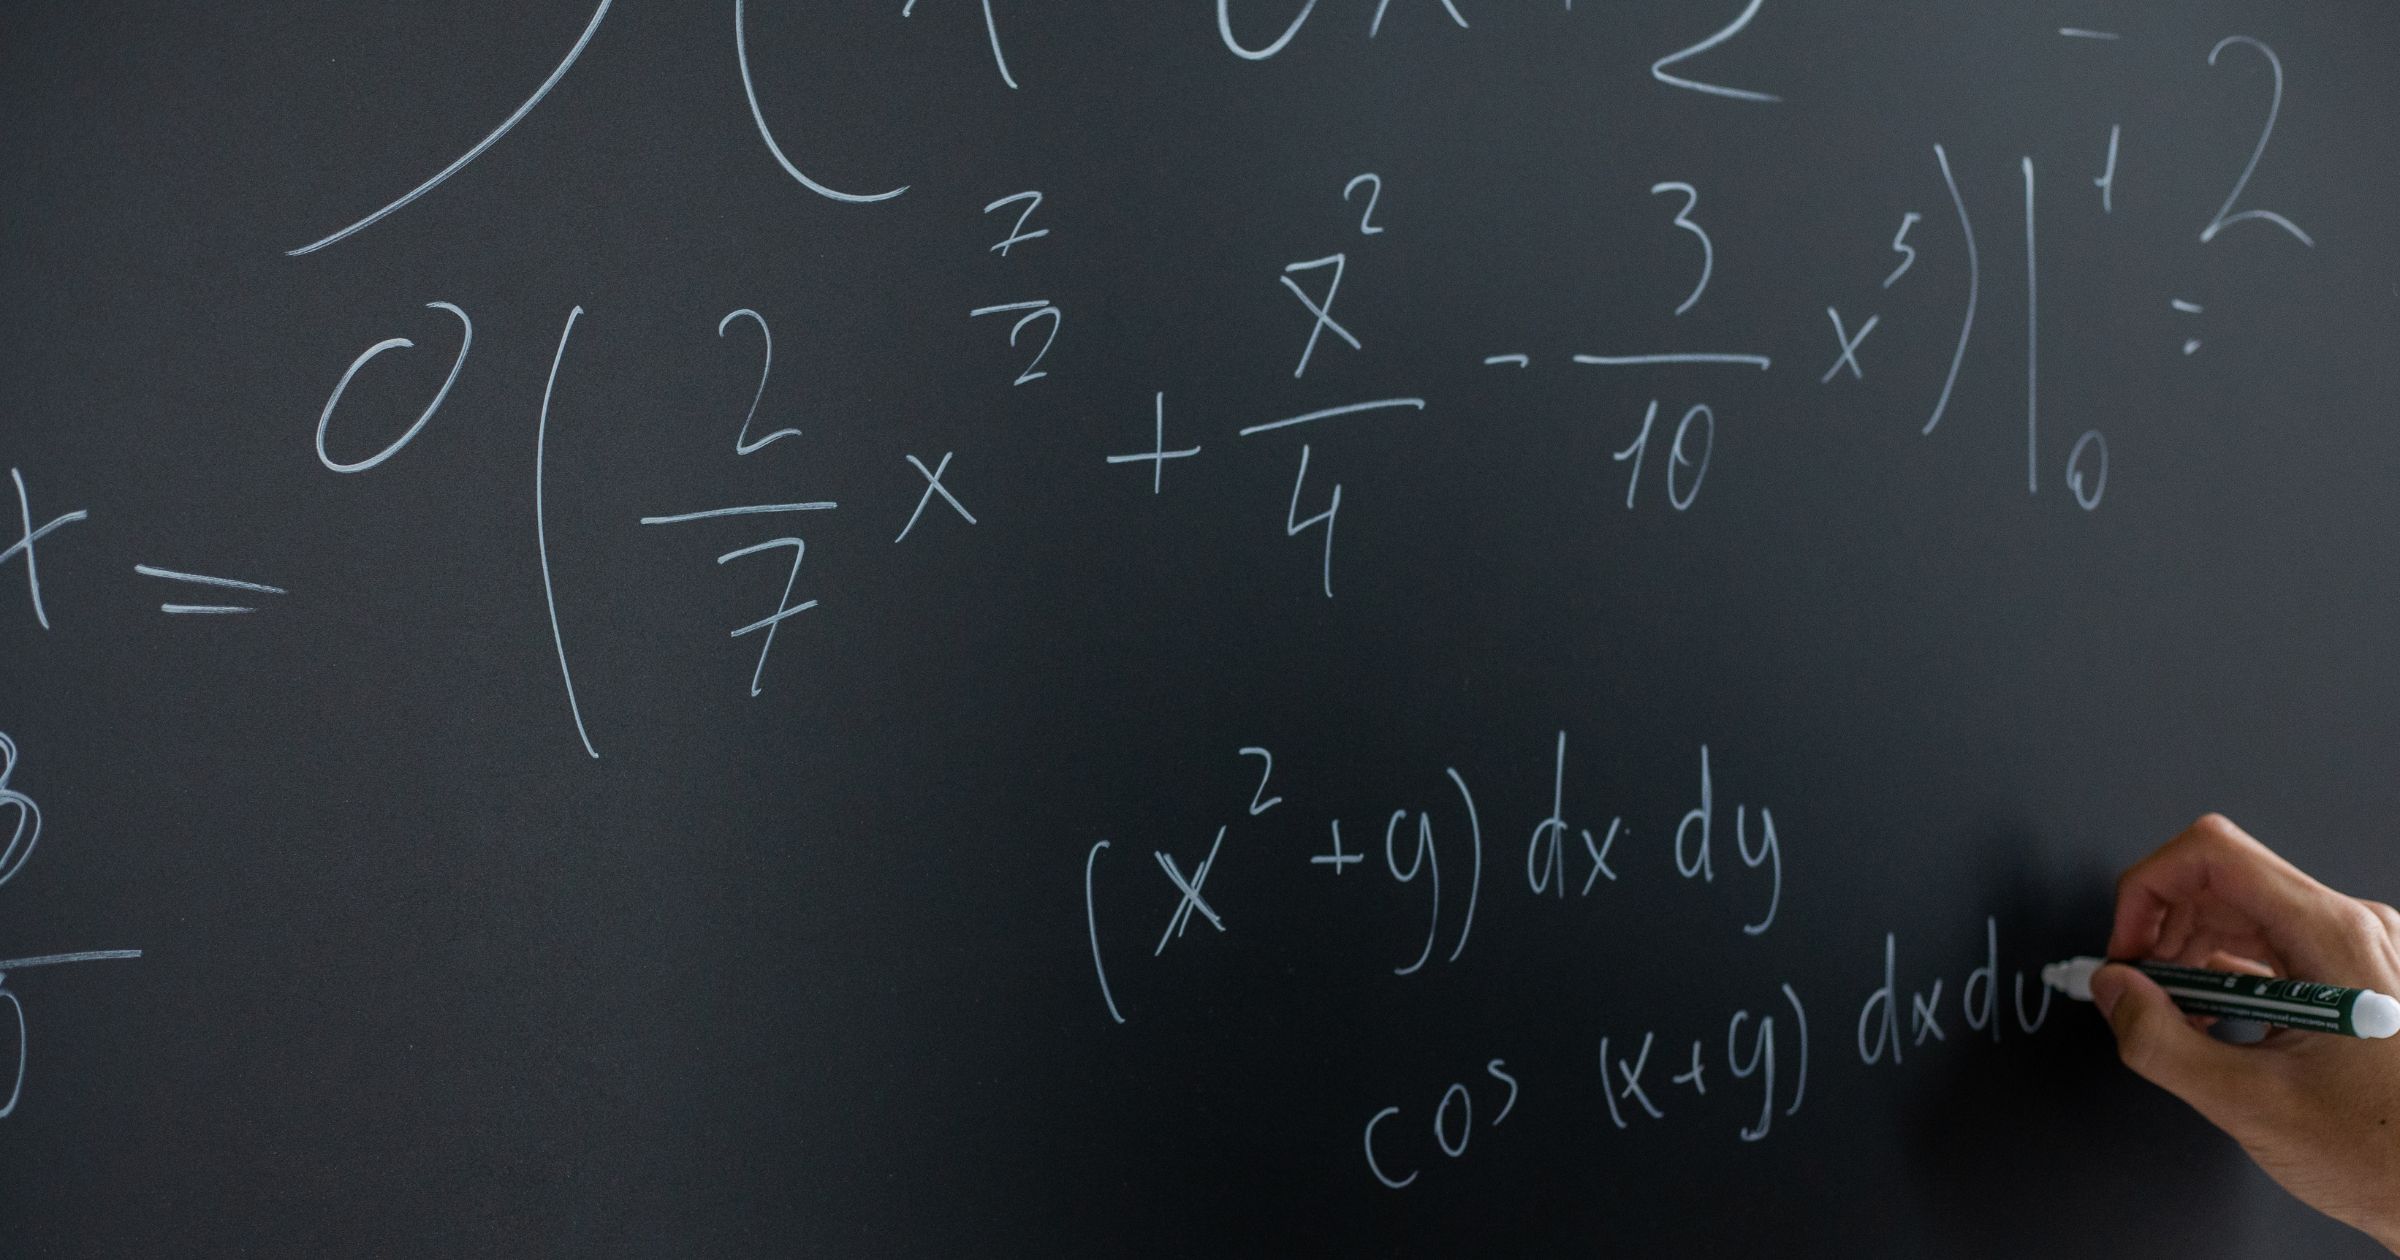 2 - 2
= 0 ( 2/7 x^(7/2) + x^2/4 - 3/10 x^5 ) |_0^1 =
(x^2 + y) dx dy
cos (x+y) dx d